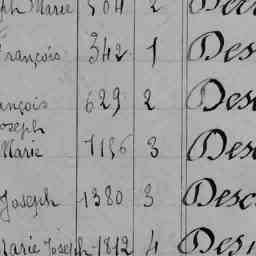 ph Marie 504 2
François 342 1 Des
ançois 629 2 Des
Joseph
Marie 1156 3 Des
Joseph 1380 3 Desc
Marie Joseph 1812 4 Des